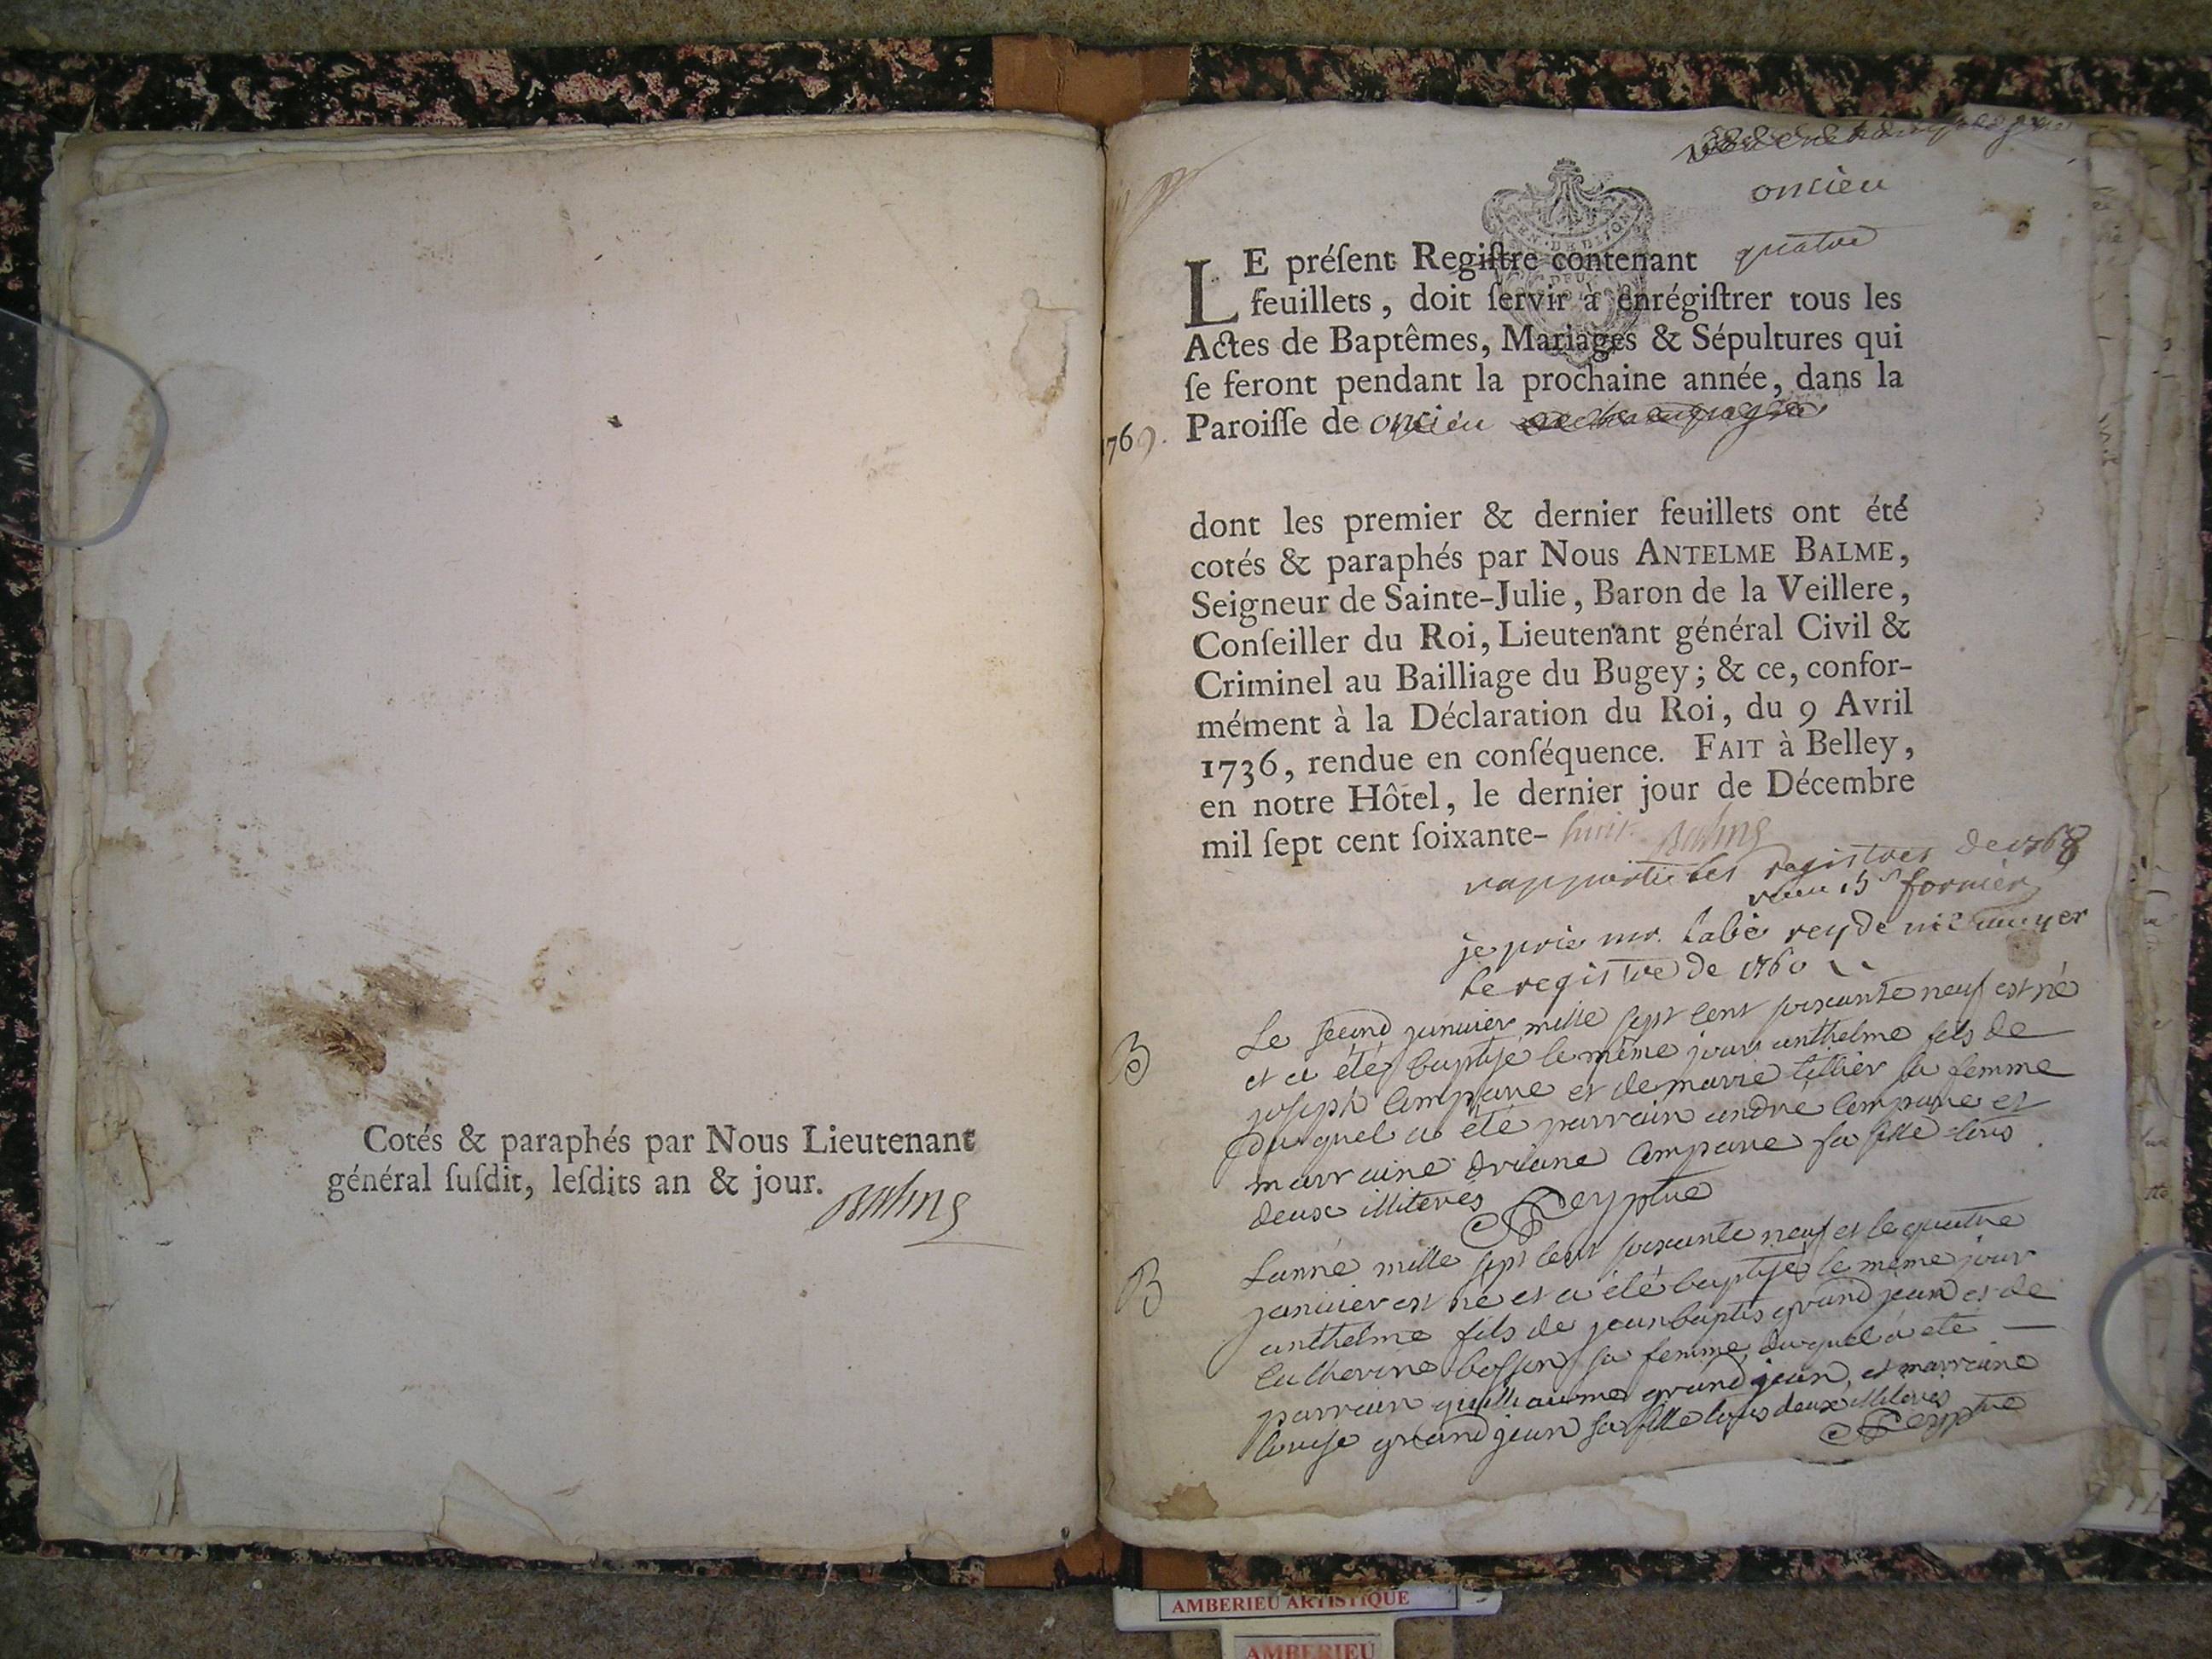 Cotés & paraphés par Nous Lieutenant
général ſuſdit, leſdits an & jour.
Balme
oncieu
LE préſent Regiſtre contenant quatre
feuillets, doit ſervir à enrégiſtrer tous les
Actes de Baptêmes, Mariages & Sépultures qui
ſe feront pendant la prochaine année, dans la
Paroiſſe de oncieu
1769.
dont les premier & dernier feuillets ont été
cotés & paraphés par Nous ANTELME BALME,
Seigneur de Sainte-Julie, Baron de la Veillere,
Conſeiller du Roi, Lieutenant général Civil &
Criminel au Bailliage du Bugey; & ce, confor-
mément à la Déclaration du Roi, du 9 Avril
1736, rendue en conſéquence. FAIT à Belley,
en notre Hôtel, le dernier jour de Décembre
mil ſept cent ſoixante- huit Balme
rapporté les registres de 1768
je prie mr. rey de
le registre de 1760
B
Le second janvier mille sept cent soixante neuf est né
et a été baptisé le même jour anthelme fils de
joseph Compare et de marie tellier sa femme
duquel a été parrain andre Compare et
marraine Compare sa fille tous
deux illiterés Reyptre
B
Lanné mille sept cent soixante neuf et le quatre
janvier est né et a été baptisé le même jour
anthelme fils de jean baptis grand jean et de
Catherine bosson sa femme, duquel a eté
parrain guillaume grand jean, et marraine
louise grand jean sa fille tous deux illiterés
Reyptre
AMBERIEU ARTISTIQUE
AMBERIEU